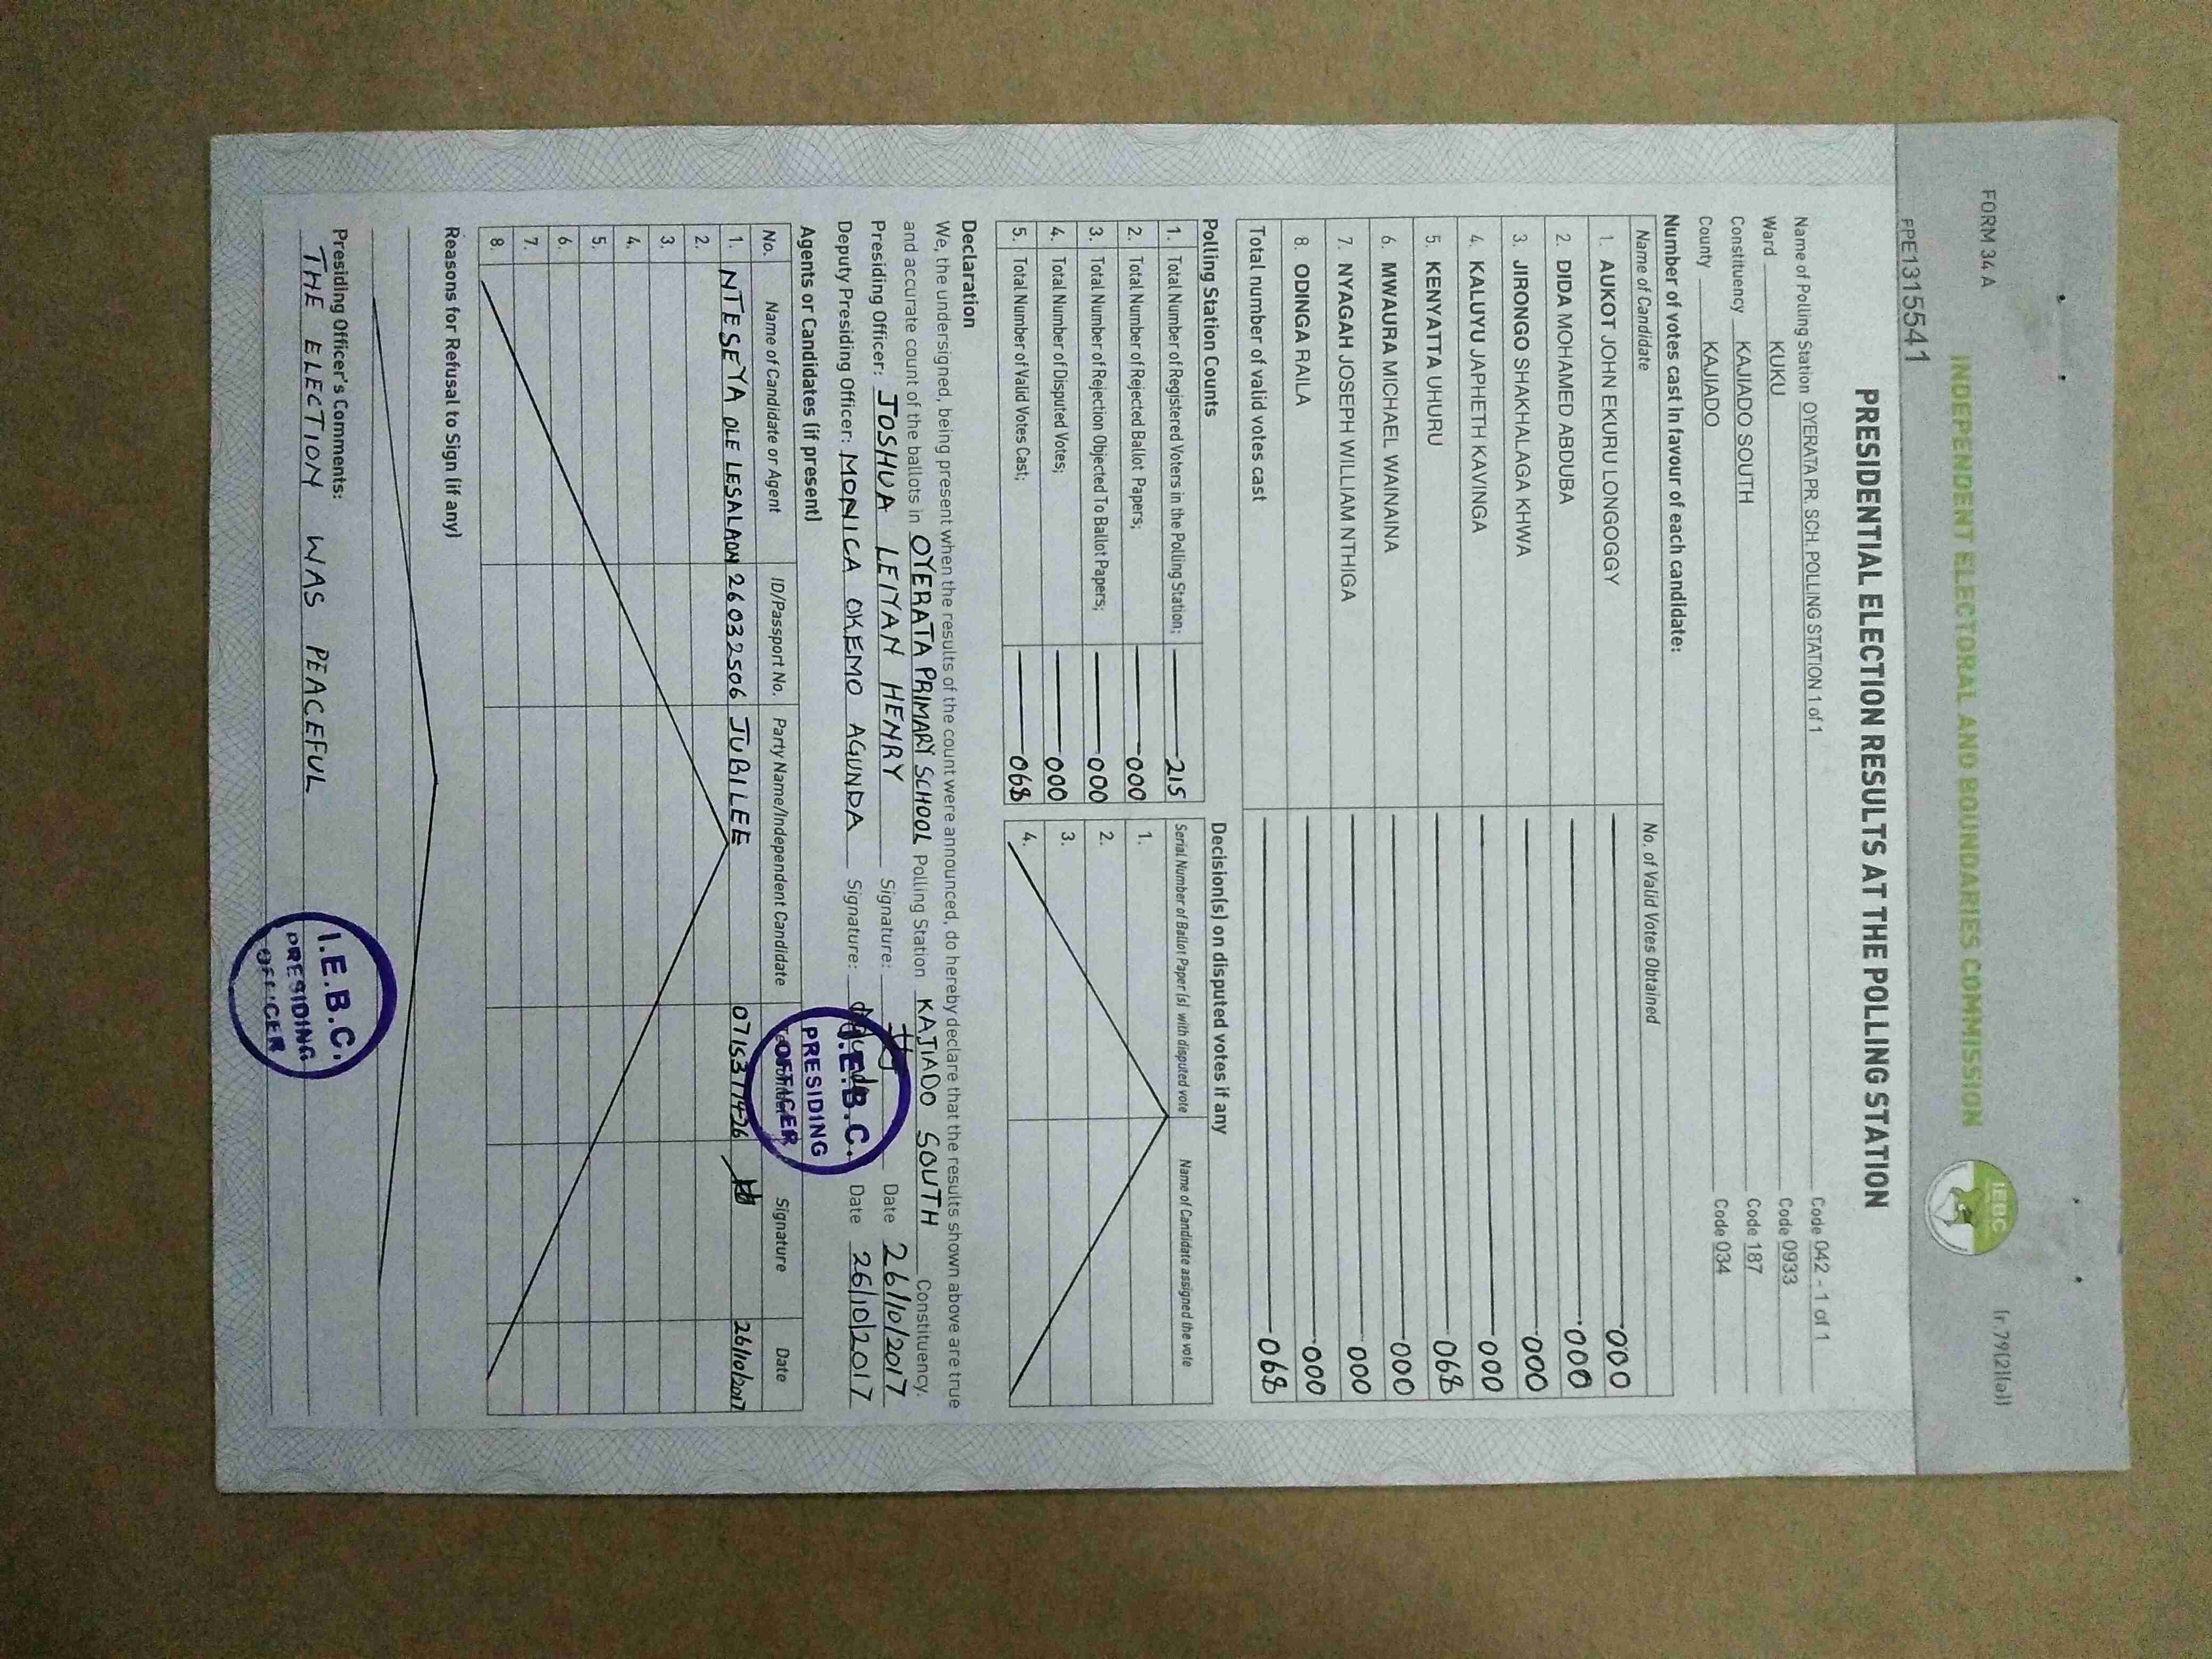 FORM 34 A
(r.79(2)(a))
INDEPENDENT ELECTORAL AND BOUNDARIES COMMISSION
IEBC
PRESIDENTIAL ELECTION RESULTS AT THE POLLING STATION
Name of Polling Station OYERATA PR. SCH. POLLING STATION 1 of 1 Code 042 - 1 of 1
Ward KUKU Code 0933
Constituency KAJIADO SOUTH Code 187
County KAJIADO Code 034
Number of votes cast in favour of each candidate:
Name of Candidate No. of Valid Votes Obtained
1. AUKOT JOHN EKURU LONGOGGY 000
2. DIDA MOHAMED ABDUBA 000
3. JIRONGO SHAKHALAGA KHWA 000
4. KALUYU JAPHETH KAVINGA 000
5. KENYATTA UHURU 068
6. MWAURA MICHAEL WAINAINA 000
7. NYAGAH JOSEPH WILLIAM NTHIGA 000
8. ODINGA RAILA 000
Total number of valid votes cast 068
Polling Station Counts
1. Total Number of Registered Voters in the Polling Station; 215
2. Total Number of Rejected Ballot Papers; 000
3. Total Number of Rejection Objected To Ballot Papers; 000
4. Total Number of Disputed Votes; 000
5. Total Number of Valid Votes Cast; 068
Decision(s) on disputed votes if any
Serial Number of Ballot Paper (s) with disputed vote Name of Candidate assigned the vote
1.
2.
3.
4.
Declaration
We, the undersigned, being present when the results of the count were announced, do hereby declare that the results shown above are true
and accurate count of the ballots in OYERATA PRIMARY SCHOOL Polling Station KAJIADO SOUTH Constituency.
Presiding Officer: JOSHUA LEIYAN HENRY Signature: Date 26/10/2017
Deputy Presiding Officer: MONICA OKEMO AGUNDA Signature: Date 26/10/2017
I.E.B.C.
PRESIDING
OFFICER
Agents or Candidates (if present)
No. Name of Candidate or Agent ID/Passport No. Party Name/Independent Candidate Signature Date
1. NTESEYA OLE LESALAON 26032506 JUBILEE 26/10/2017
2.
3.
4.
5.
6.
7.
8.
Reasons for Refusal to Sign (if any)
Presiding Officer's Comments:
THE ELECTION WAS PEACEFUL
I.E.B.C.
PRESIDING
OFFICER